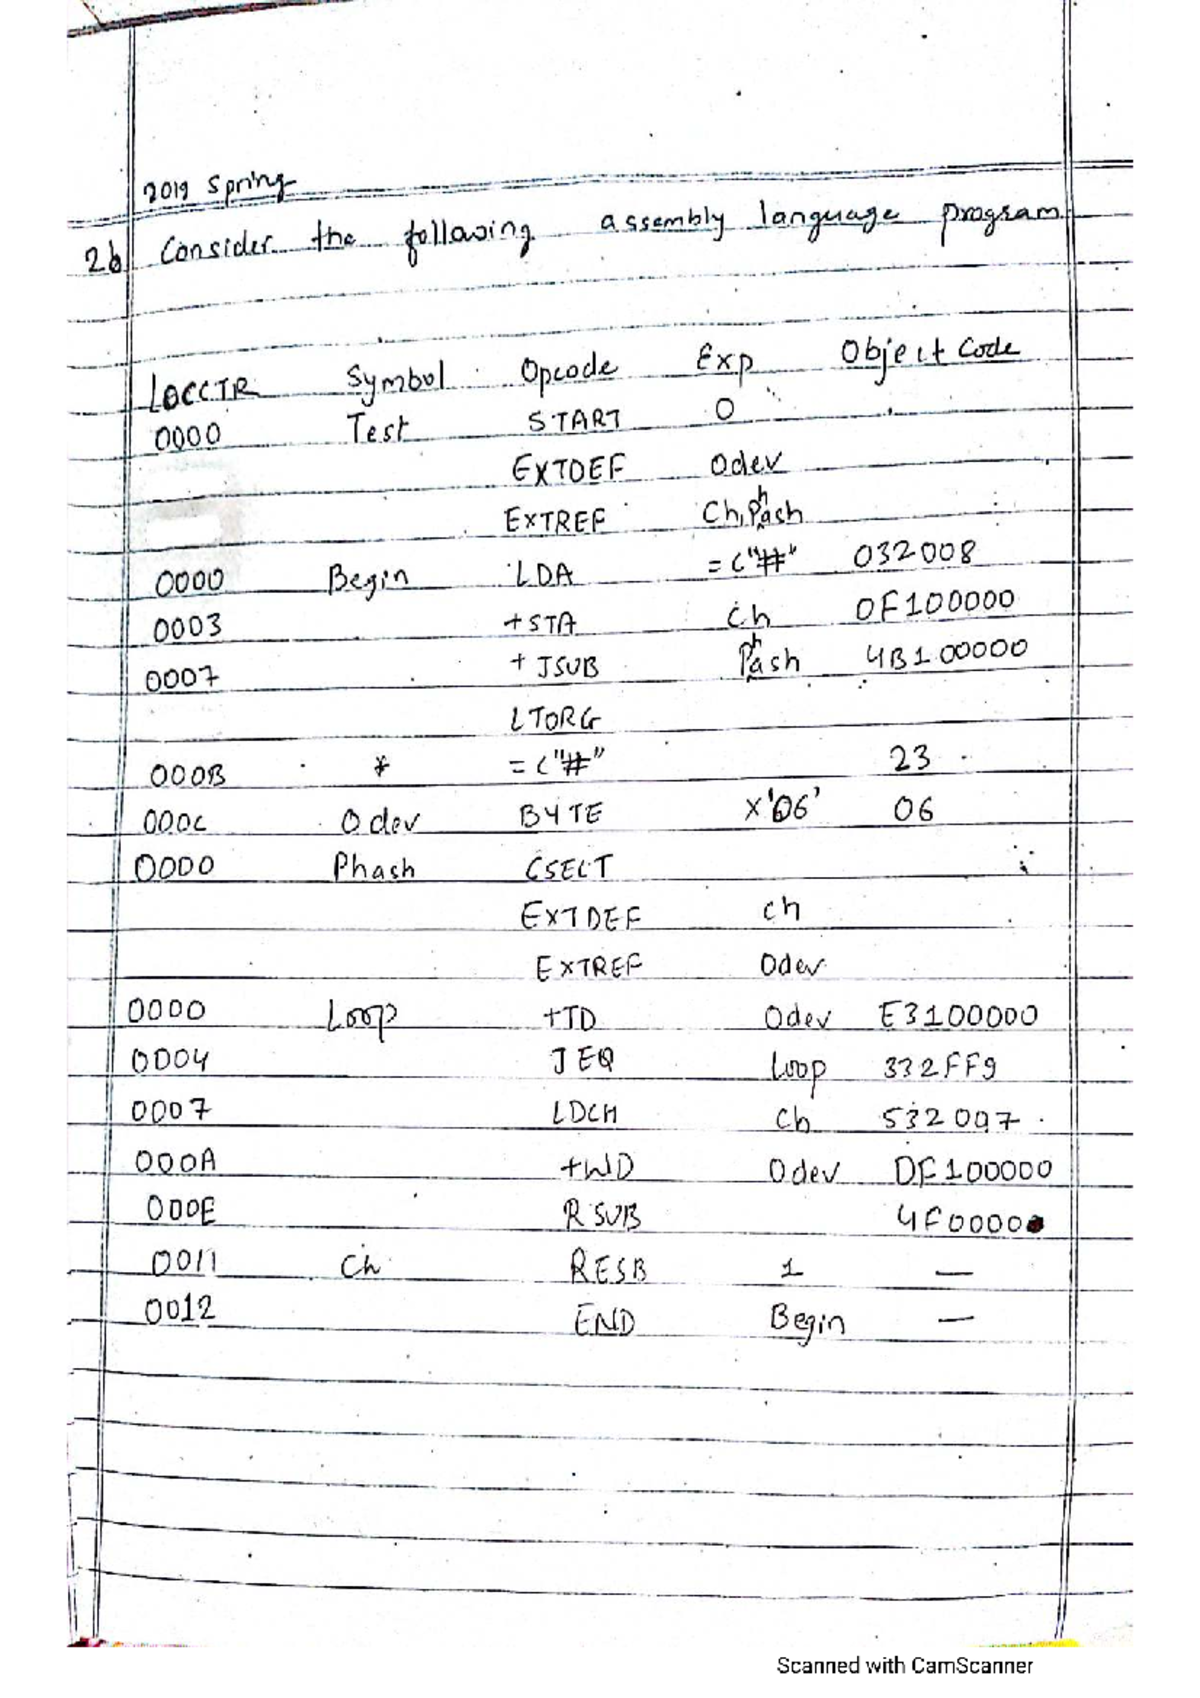 2019 Spring
2b Consider the following assembly language program
LOCCTR Symbol Opcode Exp Object Code
0000 Test START 0
EXTDEF Odev
EXTREF Ch, Phash
0000 Begin LDA =C"#" 032008
0003 +STA Ch 0F100000
0007 +JSUB Phash 4B100000
LTORG
000B * =C"#" 23
000C Odev BYTE X'06' 06
0000 Phash CSECT
EXTDEF Ch
EXTREF Odev
0000 Loop +TD Odev E3100000
0004 JEQ Loop 332FF9
0007 LDCH Ch 532007
000A +WD Odev DF100000
000E RSUB 4F0000
0011 Ch RESB 1 —
0012 END Begin —
Scanned with CamScanner